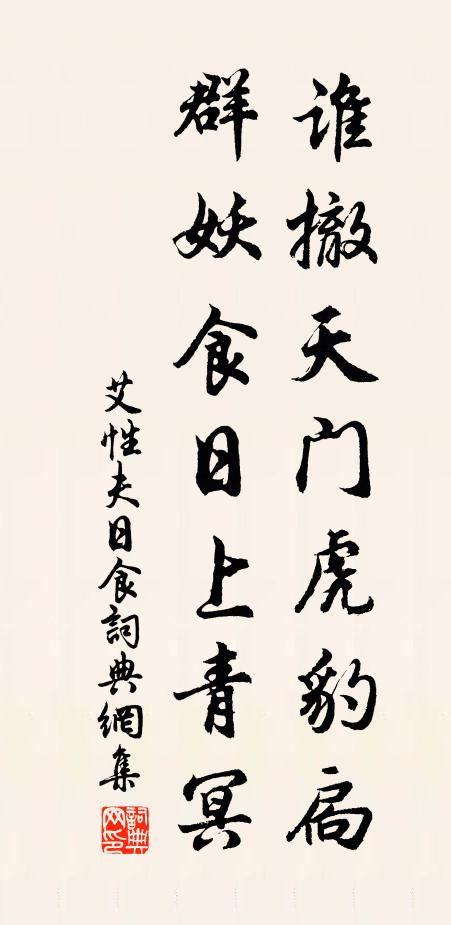 谁撤天门虎豹扃
群妖食日上青冥
艾性夫日食詞典網集
詞典网印